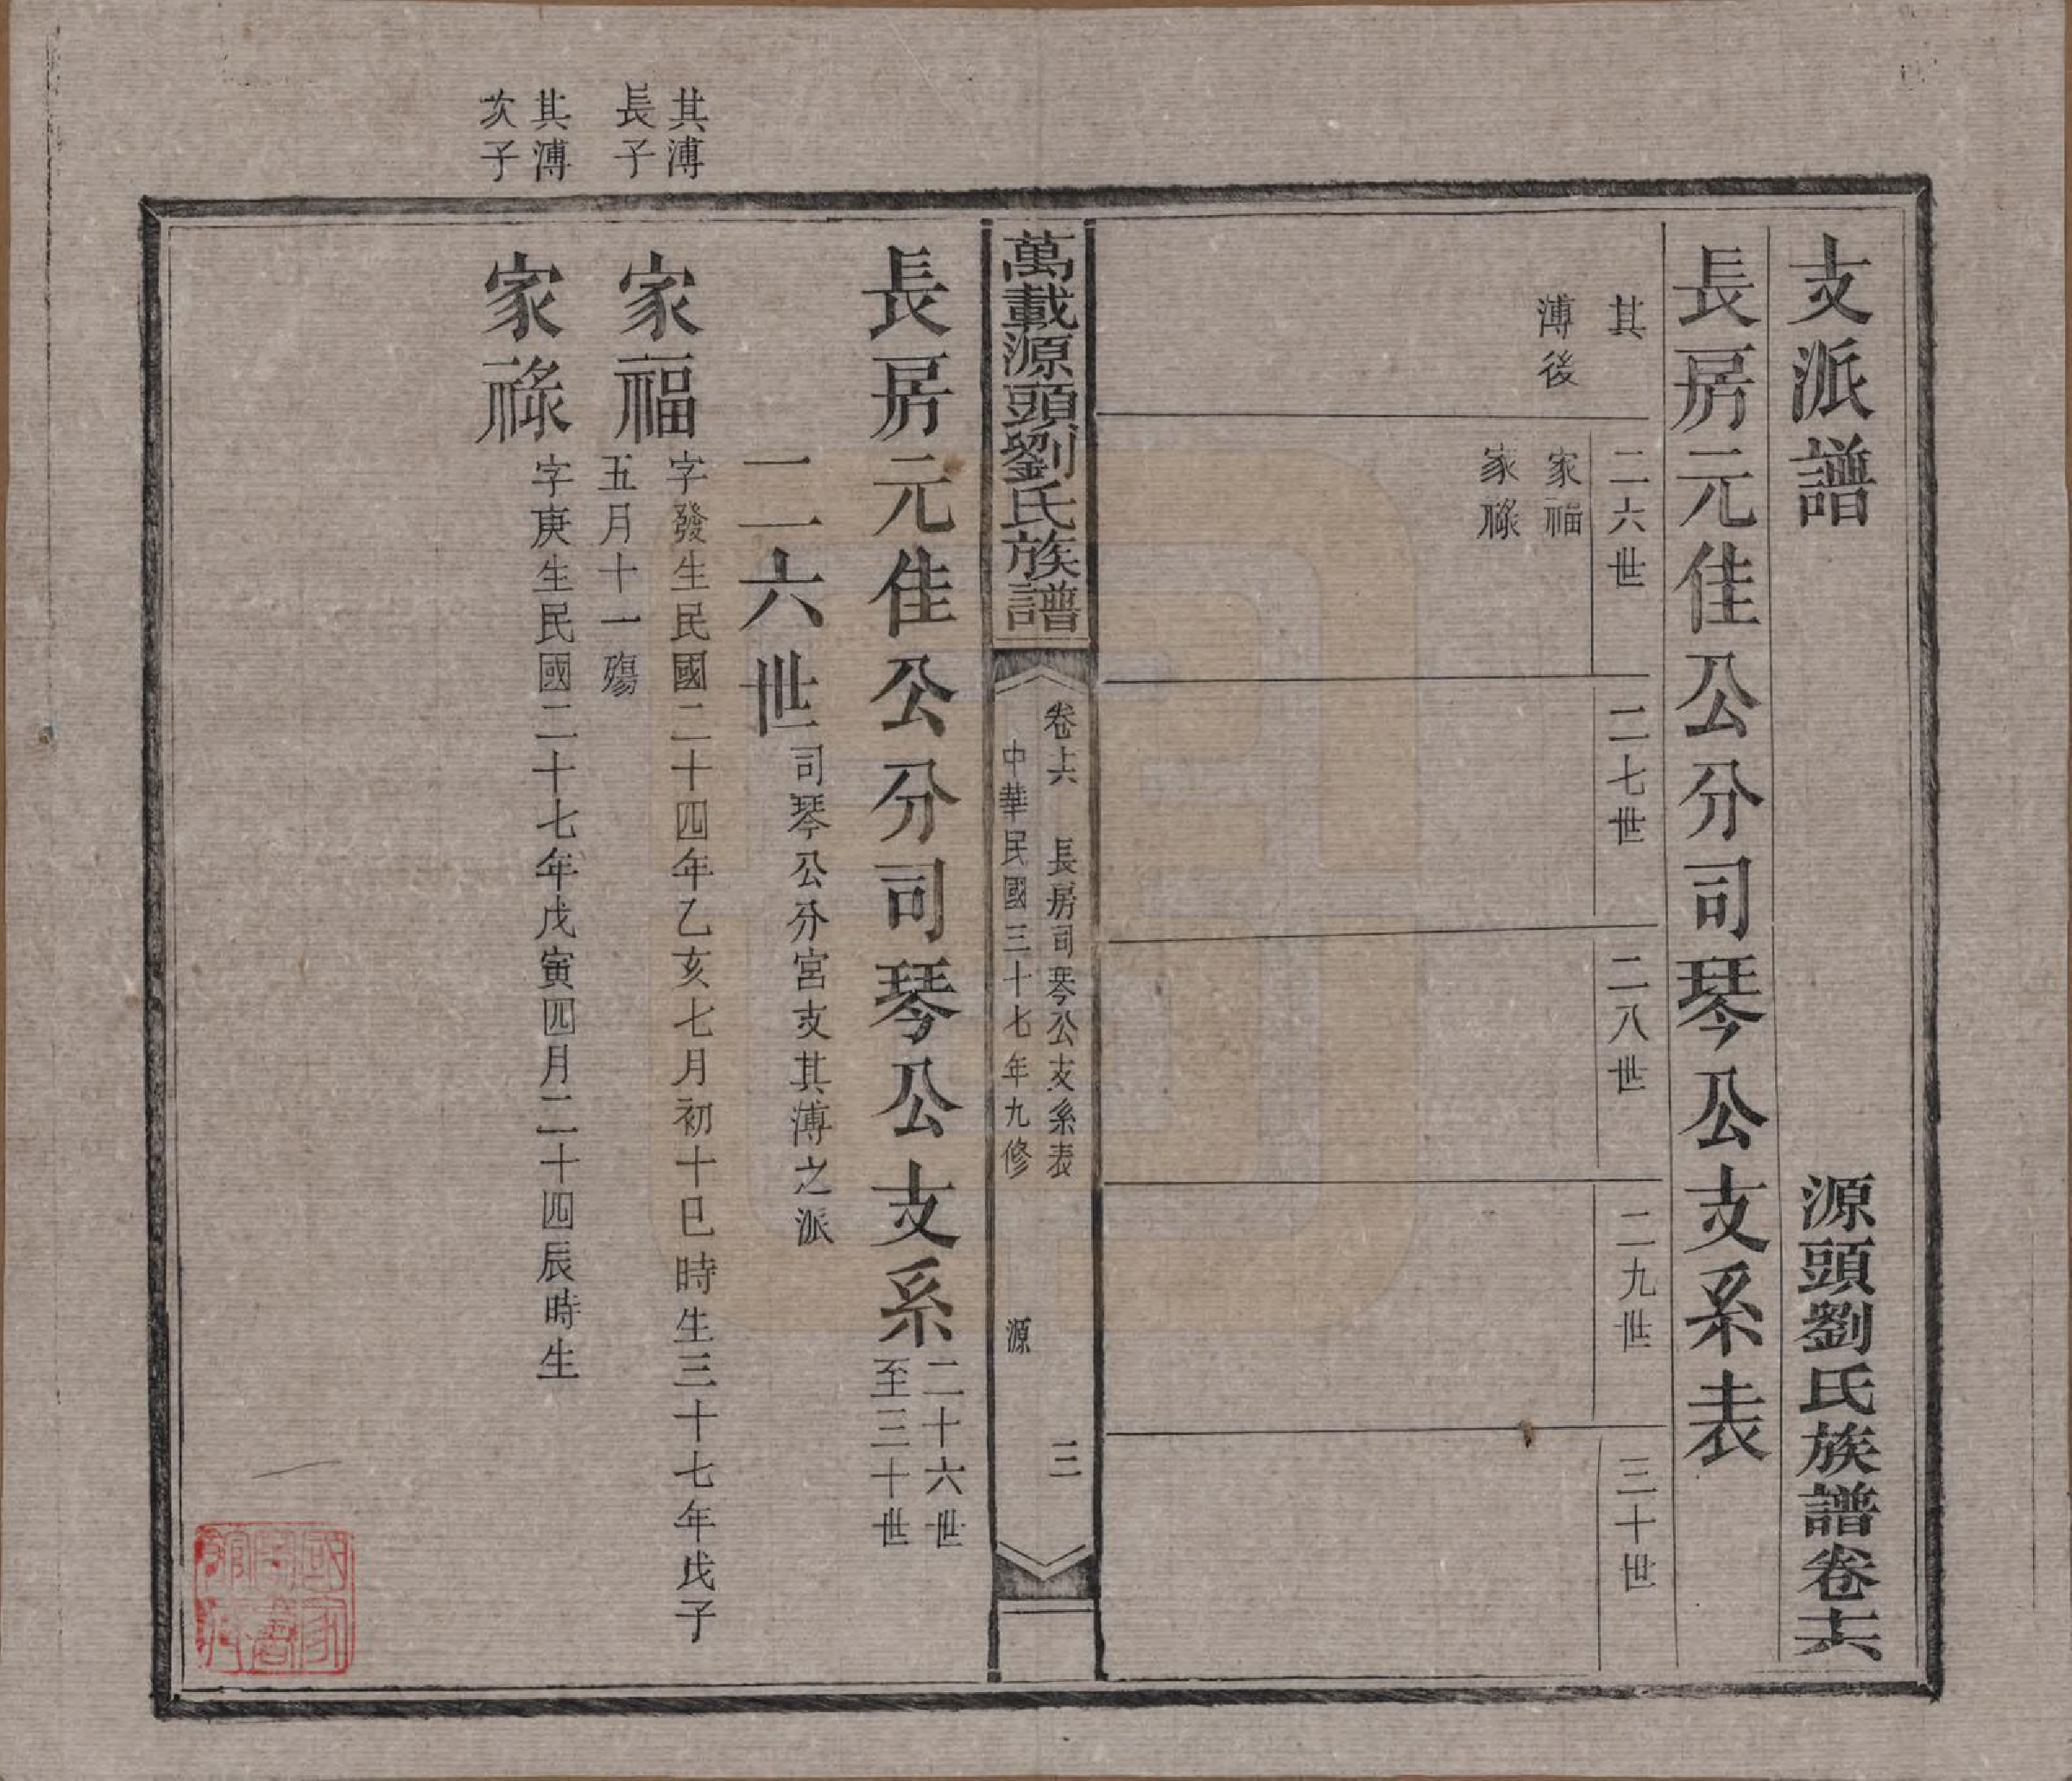 支派譜
源頭劉氏族譜卷十六
長房元佳公分司琴公支系表
其
溥後
二六世
家福
家祿
二七世
二八世
二九世
三十世
萬載源頭劉氏族譜
卷十六 長房司琴公支系表 三
中華民國三十七年九修 源
長房元佳公分司琴公支系
二十六世
至三十世
二六世
司琴公分宮支其溥之派
其溥
長子
家福
字發生民國二十四年乙亥七月初十巳時生三十七年戊子
五月十一殤
其溥
次子
家祿
字庚生民國二十七年戊寅四月二十四辰時生
國家
圖書